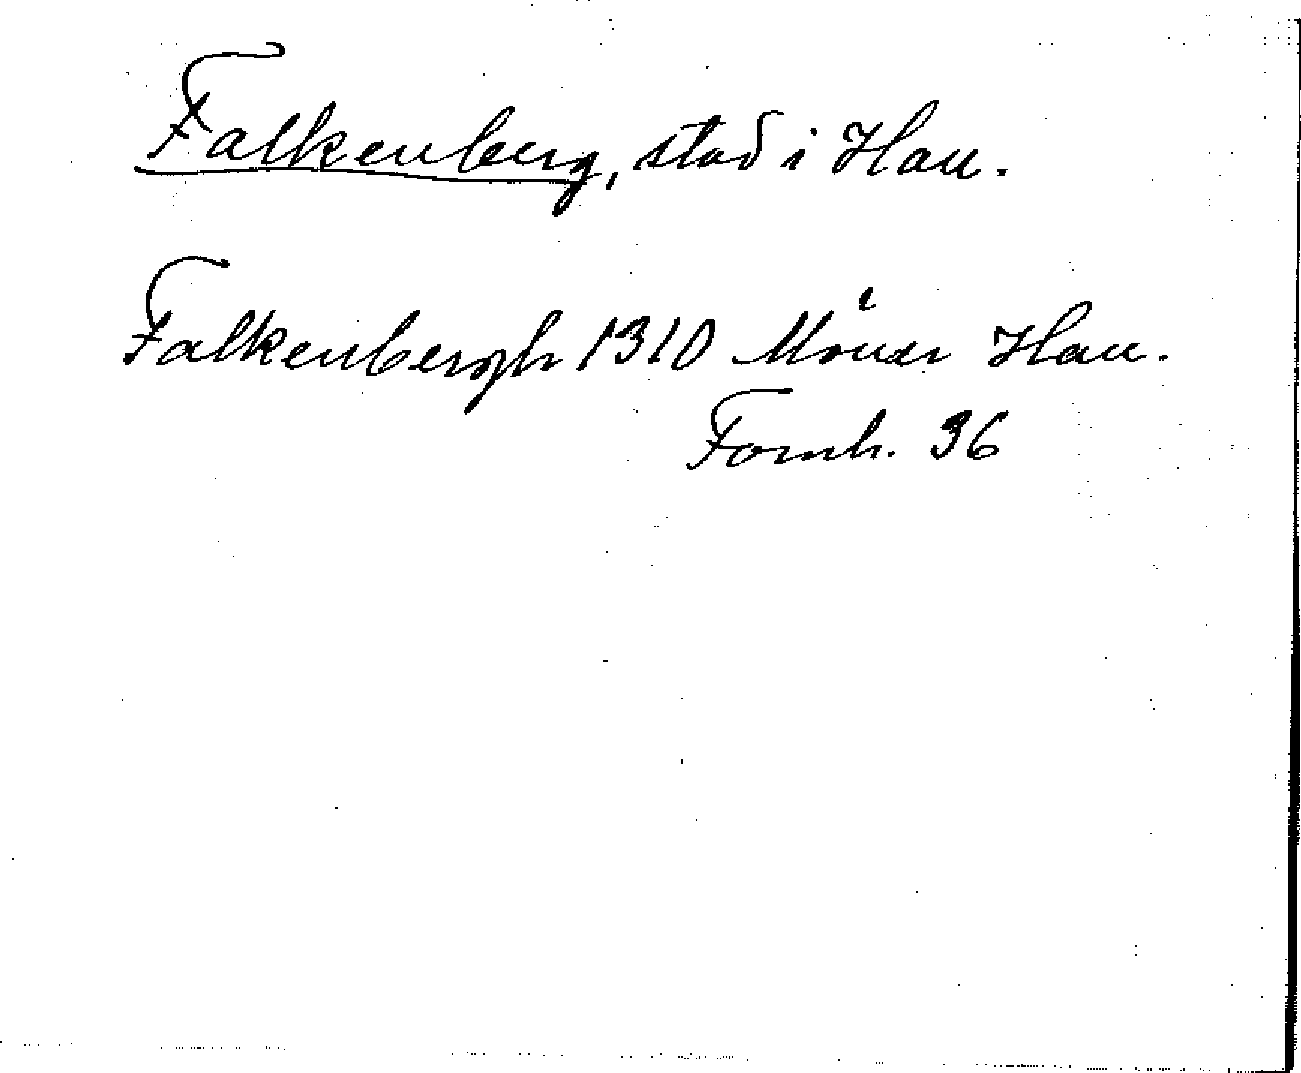 Falkenberg, stad i Hall.
Falkenbergh 1310 Hall.
Fornh. 36